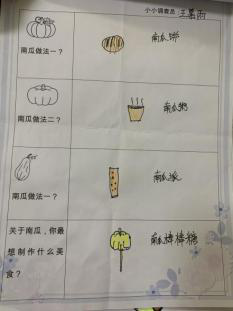 小小调查员 王慕雨
南瓜做法一？ 南瓜饼
南瓜做法二？ 南瓜粥
南瓜做法一？ 南瓜派
关于南瓜，你最
想制作什么美
食？
南瓜棒棒糖